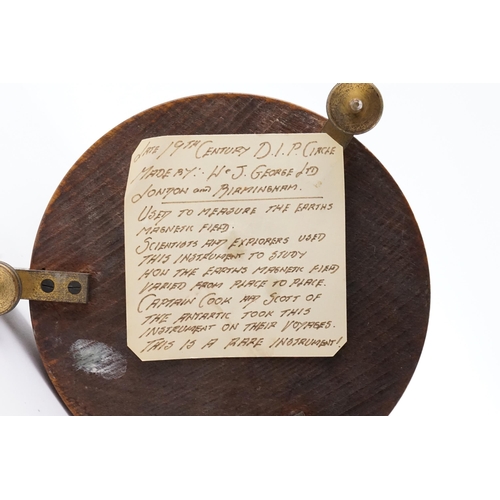 LATE 19TH CENTURY D.I.P. CIRCLE
MADE BY:. W + J. GEORGE LTD
LONDON and BIRMINGHAM.
USED TO MEASURE THE EARTHS
MAGNETIC FIELD.
SCIENTISTS AND EXPLORERS USED
THIS INSTRUMENT TO STUDY
HOW THE EARTHS MAGNETIC FIELD
VARIED FROM PLACE TO PLACE.
CAPTAIN COOK AND SCOTT OF
THE ANTARTIC TOOK THIS
INSTRUMENT ON THEIR VOYAGES.
THIS IS A RARE INSTRUMENT!